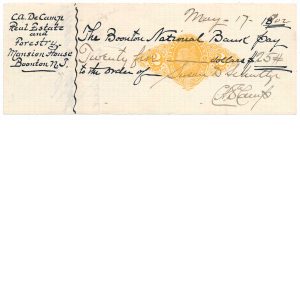 C.A. DeCamp
Real Estate
and
Forestry
Mansion House
Boonton N.J.
May 17 1902
The Boonton National Bank Pay
Twenty five dollars $25
2
to the order of
C.A. DeCamp